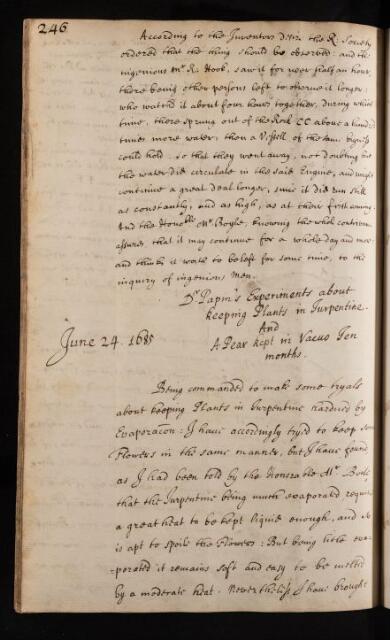 246
According to the Inventors desire the R: Society
ordered that the thing should be observed: and the
ingenious Mr. R: Hook, saw it for neer half an hour
there being other persons left to observe it longer:
who watch'd it about four hours together, during which
time, there sprung out of the Rock CC about a hundred
times more water, then a Vessell of the same bigness
could hold: so that they went away, not doubting but
the water did circulate in the said Engine, and might
continue a great deal longer, since it did run still
as constantly, and as high, as at their first coming.
And the Honoble Mr. Boyle, knowing the whole contrivan
assures that it may continue for a whole day and more
and thinks it worth to be left for some time, to the
inquiry of ingenious Men.
Dr Papin's Experiments about
keeping Plants in Turpentine.
And
June 24. 1685
A Pear kept in Vacuo Ten
months.
Being commanded to make some tryals
about keeping Plants in Turpentine hardned by
Evaporacon: I have accordingly tryed to keep some
Flowers in the same manner, but I have found
as I had been told by the Honorable Mr. Boyle
that the Turpentine being much evaporated requires
a great heat to be kept liquid enough, and so
is apt to spoile the Flowers: But being little eva-
-porated it remains soft and easy to be melted
by a moderate heat. Nevertheless I have brought